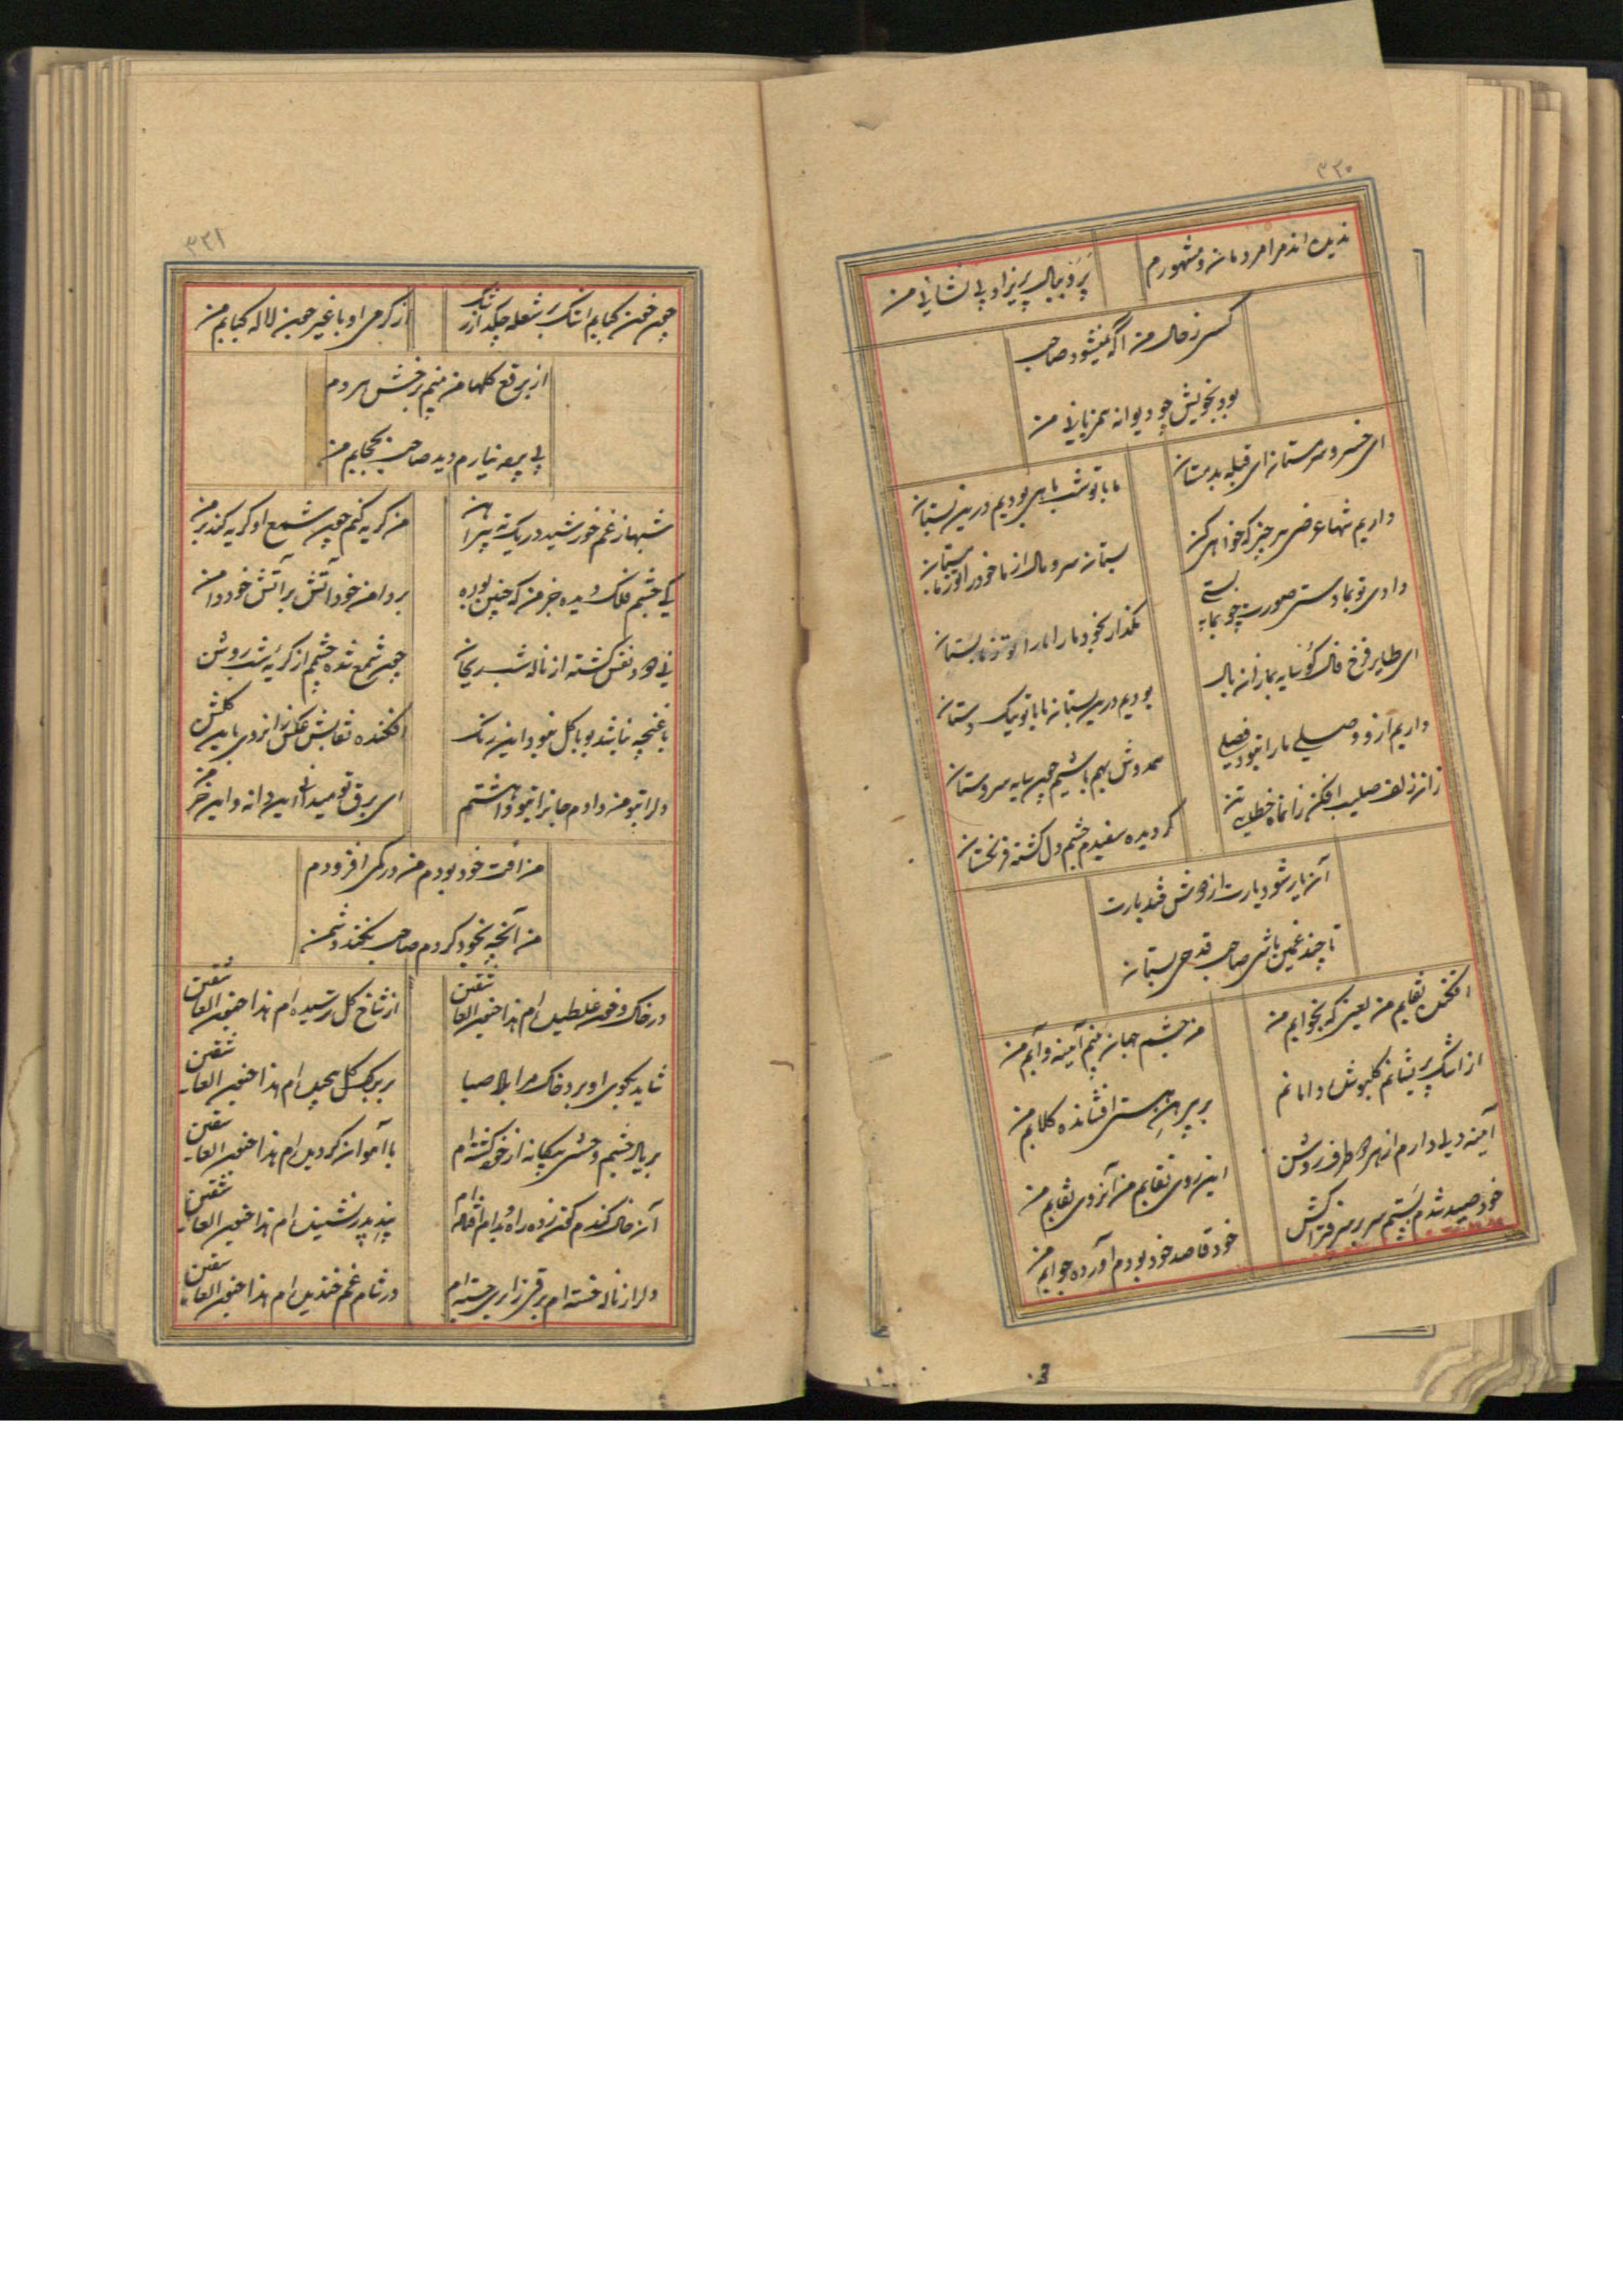 ۳۳۰
ندیده اند مرا مردمان و مشهورم
پر و ببال پریزاد بی نشانی من
کسی ز حال من آگه نمیشود صاحب
بود بخویش چو دیوانه همزبانی من
ای خسرو سرمستان ای قبله بدمستان
ما با تو شب ماهی بودیم درین بستان
داریم شها عرضی هر چیز که خواهی کن
بستان سر و مال از ما خود را تو ز ما بستان
دادی تو بما دستی صورت چو بما بستی
مگذار بخود ما را ما را تو ز ما بستان
ای طایر فرخ فال کو سایه بما زان بال
بودیم درین بستان ما با تو بیک دستان
داریم از و وصیلی ما را نبود فصلی
همدوش بهم باشیم چون سایه سروستان
زان زلف صلیب افکن زانماه خطایی تن
گردیده سفیدم چشم دل گشته فرنگستان
آن یار شود یارت از هوش فتد بارت
تا چند غمین باشی صاحب قدحی بستان
افکنده نقابم من یعنی که بخوابم من
من چشم جهان بینم آیینه و آبم من
از اشک پریشانم گلپوش دامانم
بر پیرهن هستی افشانده گلابم من
آیینه دلی دارم از هر دو طرف روشن
این روی نقابم من آنروی نقابم من
خود صید شدم بستم سر بر سر فتراکش
خود قاصد خود بودم آورده جوابم من
۳۳۱
چون خون کبابم اشک شعله چکد از رشک
از گرمی او با غیر چون لاله کبابم من
از برقع گلها من بینم رخش هر دم
بی پرده نیارم دید صاحب بحجابم من
شبها ز غم خورشید در یک ته پیراهن
من گریه کنم چون شمع او گریه کند بر من
کی چشم فلک دیده جز من که چنین بوده
بر دامن خود آتش بر آتش خود دامن
نی دود نفس گشته از ناله شب ریحان
چون شمع شده چشمم از گریه شب روشن
با غنچه نباشد بو با گل نبود این رنگ
افکنده نقابش عکس زانروی باین گلشن
دل را بتو من دادم جانرا بتو واهشتم
ای برق تو میدانی این دانه و این خرمن
من آفت خود بودم من درگمی افزودم
من آنچه بخود کردم صاحب نکند دشمن
در خاک و خون غلطیده ام هذا جنون العاشقین
از شاخ گل ترسیده ام هذا جنون العاشقین
شاید بکوی او برد خاک مرا باد صبا
بر برگ گل پیچیده ام هذا جنون العاشقین
بر یاد چشم وحشی بیگانه از خود گشته ام
با آهوان گردیده ام هذا جنون العاشقین
آن خال گندم گون زده راه و بدام افتاده ام
پند پدر نشنیده ام هذا جنون العاشقین
دل را ز ناله خسته ام برقی ز ابری جسته ام
در شام غم خندیده ام هذا جنون العاشقین